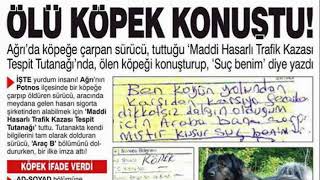 ÖLÜ KÖPEK KONUŞTU!
Ağrı'da köpeğe çarpan sürücü, tuttuğu 'Maddi Hasarlı Trafik Kazası
Tespit Tutanağı'nda, ölen köpeği konuşturup, 'Suç benim' diye yazdı
İŞTE yurdum insanı! Ağrı'nın
Potnos ilçesinde bir köpeğe
çarpıp öldüren sürücü, aracında
meydana gelen hasarı sigorta
şirketinden alabilmek için 'Maddi
Hasarlı Trafik Kazası Tespit
Tutanağı' tuttu. Tutanakta kendi
bilgilerini tam olarak dolduran
sürücü, 'Araç B' bölümünü doldururken,
bir ilke imza attı!
KÖPEK İFADE VERDİ
AD-SOYAD bölümüne
Ben koyun yolundan
karşıdan karşıya
dikkatsiz
için Araba bana
kusur Suç benim
KÖPEK